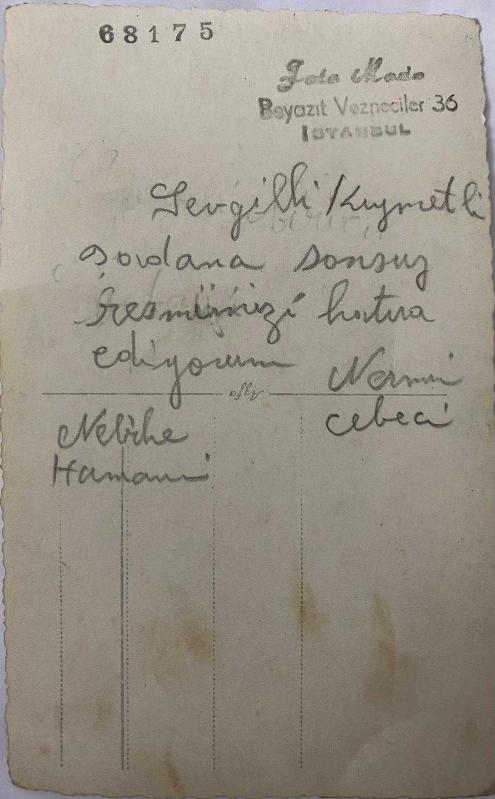 68175
Foto Moda
Beyazıt Vezneciler 36
İSTANBUL
Sevgilli Kıymetli
sonsuz
resmimizi hatıra
ediyorum Nermin
Agfa
Cebeci
Nebihe